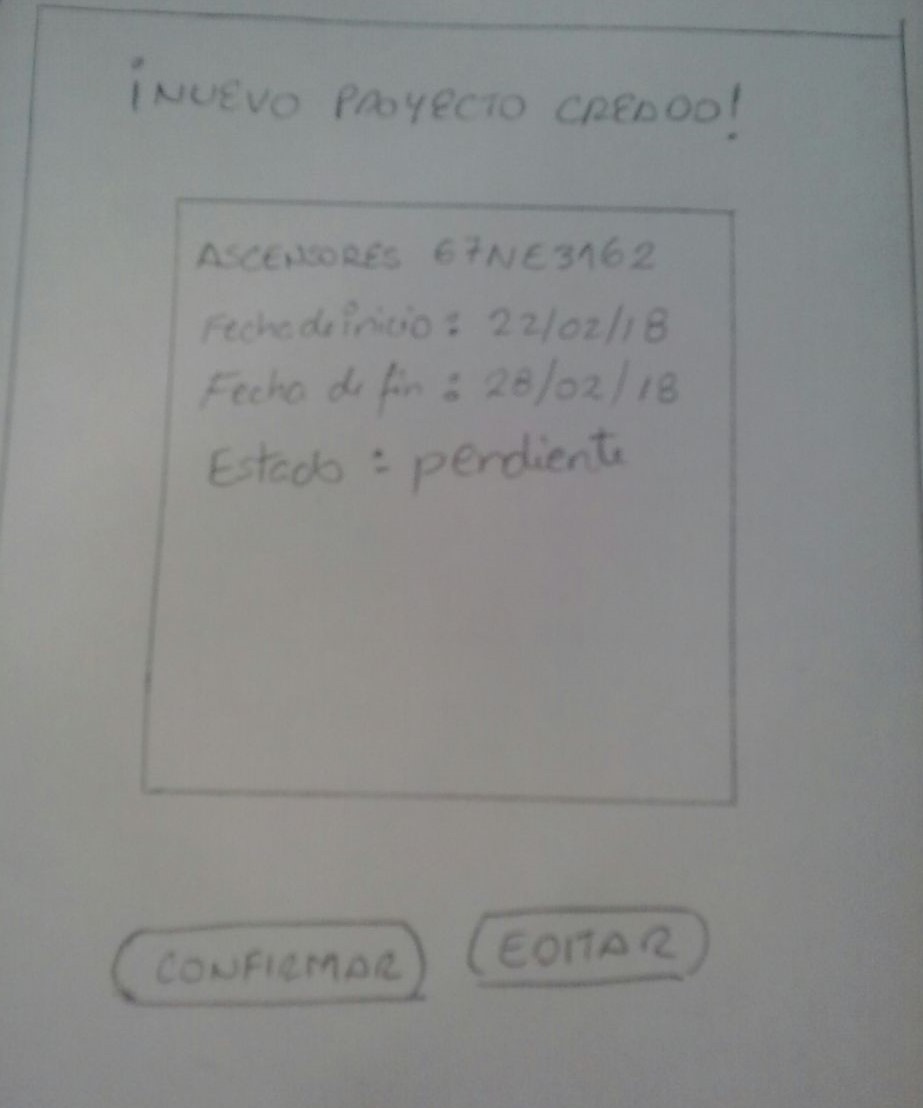 ¡NUEVO PROYECTO CREADO!
ASCENSORES 67NE3162
Fecha de inicio : 22/02/18
Fecha de fin : 28/02/18
Estado : pendiente
CONFIRMAR
EDITAR